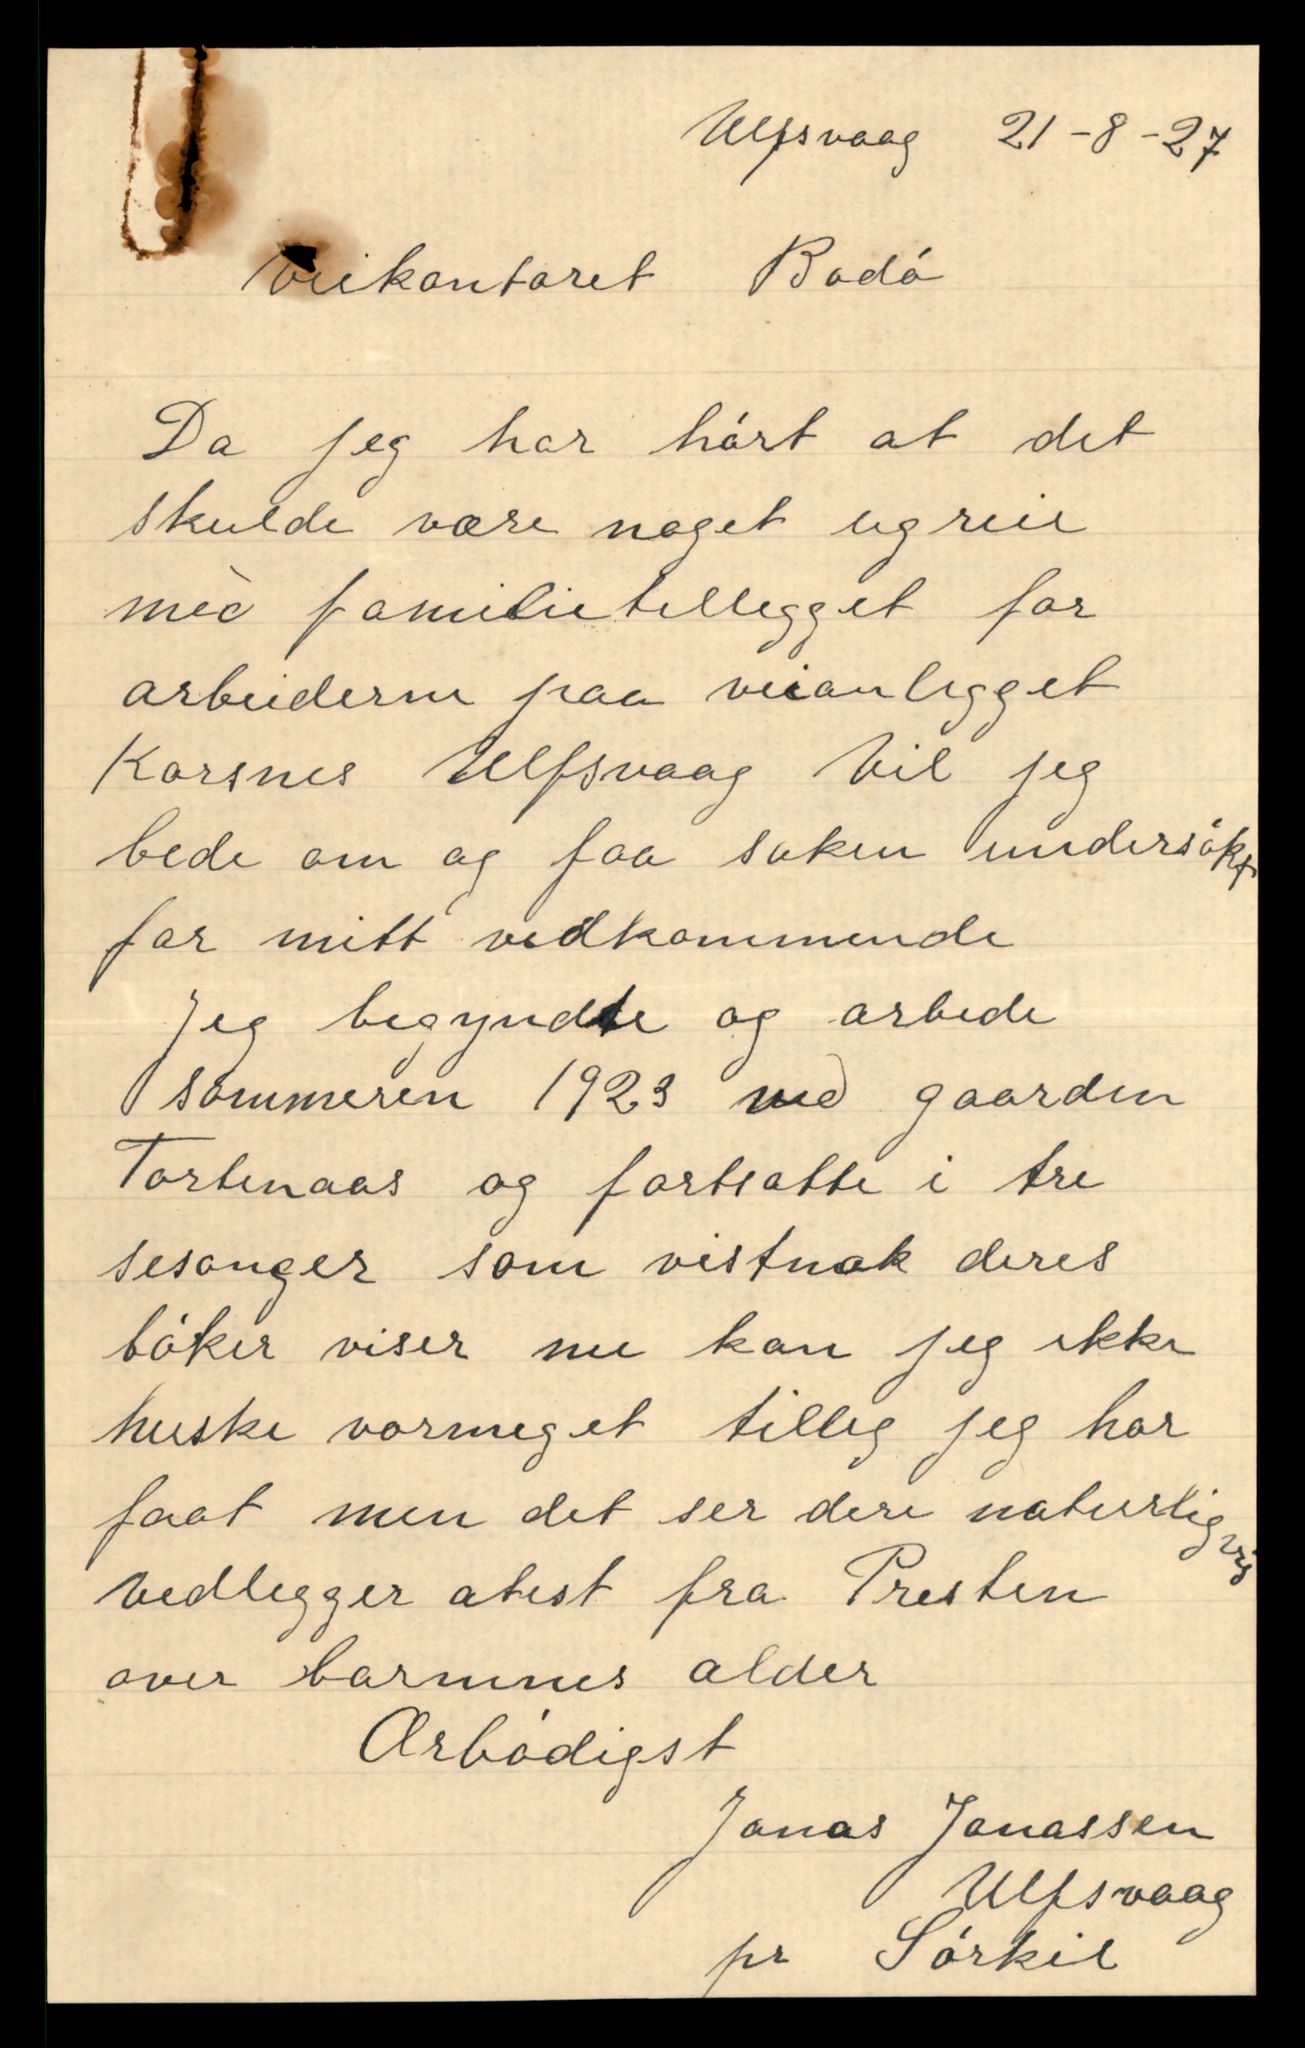 Ulfsvaag 21-8-27
Veikontoret Bodó
Da jeg har hórt at det
skulde være noget ugreie
med familietellegget for
arbeiderne paa veianlegget
Korsnes Ulfsvaag Vil jeg
bede om og faa saken undersókt
for mitt vedkommende
Jeg begyndte og arbede
sommeren 1923 ved gaarden
Tortenaas og fortsatte i tre
sesonger som vistnok deres
bóker viser nu kan jeg ikke
huske vormeget tilleg jeg har
faat men det ser dere naturligvis
Vedlegger atest fra Presten
over barnnes alder
Ærbódigst
Jonas Jonassen
Ulfsvaag
pr Sórkil